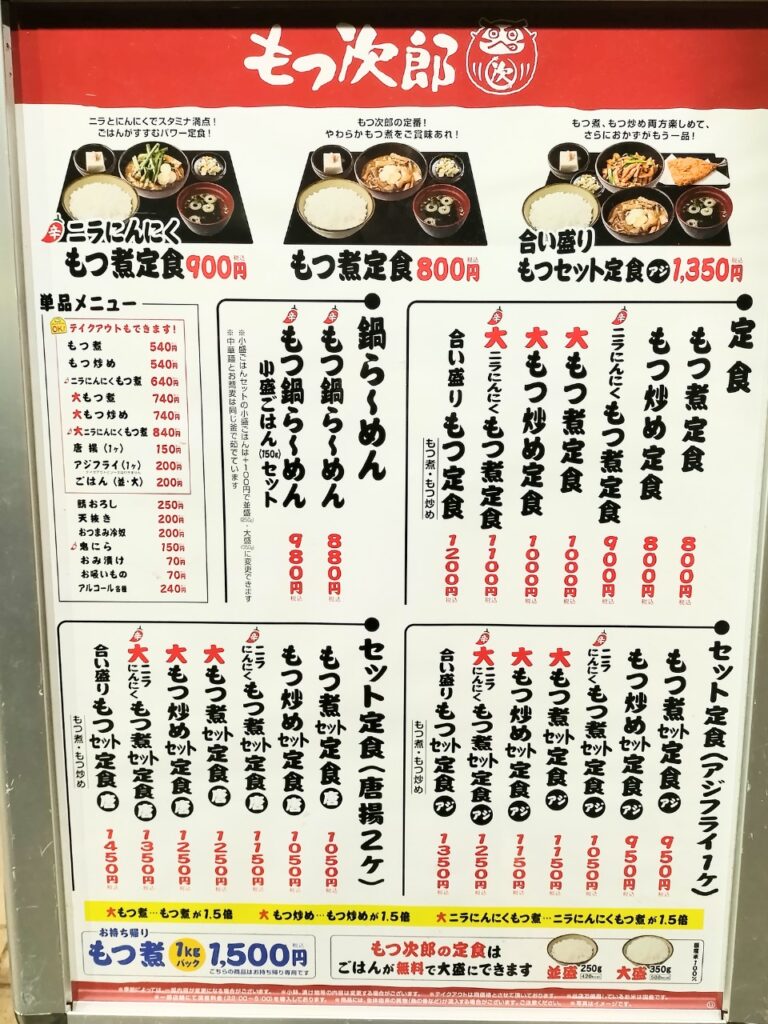 もつ次郎
次
ニラとにんにくでスタミナ満点!
ごはんがすすむパワー定食!
辛 ニラにんにく
もつ煮定食 900円 税込
もつ次郎の定番!
やわらかもつ煮をご賞味あれ!
もつ煮定食 800円 税込
もつ煮、もつ炒め両方楽しめて、
さらにおかずがもう一品!
合い盛り
もつセット定食 アジ 1,350円 税込
単品メニュー
OK! テイクアウトもできます!
もつ煮 540円
もつ炒め 540円
ニラにんにくもつ煮 640円
大もつ煮 740円
大もつ炒め 740円
大ニラにんにくもつ煮 840円
唐揚(1ヶ) 150円
アジフライ(1ヶ) 200円
ごはん(並・大) 200円
鶏おろし 250円
天抜き 200円
おつまみ冷奴 200円
鬼にら 150円
おみ漬け 70円
お吸いもの 70円
アルコール各種 240円
鍋ら〜めん
辛 もつ鍋ら〜めん 880円 税込
辛 もつ鍋ら〜めん
小盛ごはん(150g)セット 980円 税込
※小盛ごはんセットの小盛ごはんは+100円で並盛(250g)・大盛(350g)に変更できます
※中華麺とお蕎麦は同じ釜で茹でています
定食
もつ煮定食 800円 税込
もつ炒め定食 800円 税込
辛 ニラにんにくもつ煮定食 900円 税込
大もつ煮定食 1000円 税込
大もつ炒め定食 1000円 税込
辛 大ニラにんにくもつ煮定食 1100円 税込
合い盛りもつ定食 もつ煮・もつ炒め 1200円 税込
セット定食(唐揚2ヶ)
もつ煮セット定食 唐 1050円 税込
もつ炒めセット定食 唐 1050円 税込
辛 ニラにんにくもつ煮セット定食 唐 1150円 税込
大もつ煮セット定食 唐 1250円 税込
大もつ炒めセット定食 唐 1250円 税込
辛 大ニラにんにくもつ煮セット定食 唐 1350円 税込
合い盛りもつセット定食 唐 もつ煮・もつ炒め 1450円 税込
セット定食(アジフライ1ヶ)
もつ煮セット定食 アジ 950円 税込
もつ炒めセット定食 アジ 950円 税込
辛 ニラにんにくもつ煮セット定食 アジ 1050円 税込
大もつ煮セット定食 アジ 1150円 税込
大もつ炒めセット定食 アジ 1150円 税込
辛 大ニラにんにくもつ煮セット定食 アジ 1250円 税込
合い盛りもつセット定食 アジ もつ煮・もつ炒め 1350円 税込
大もつ煮…もつ煮が1.5倍 大もつ炒め…もつ炒めが1.5倍 大ニラにんにくもつ煮…ニラにんにくもつ煮が1.5倍
お持ち帰り
もつ煮 1kgパック 1,500円 税込
こちらの商品はお持ち帰り専用です
もつ次郎の定食は
ごはんが無料で大盛にできます
並盛 250g
大盛 350g